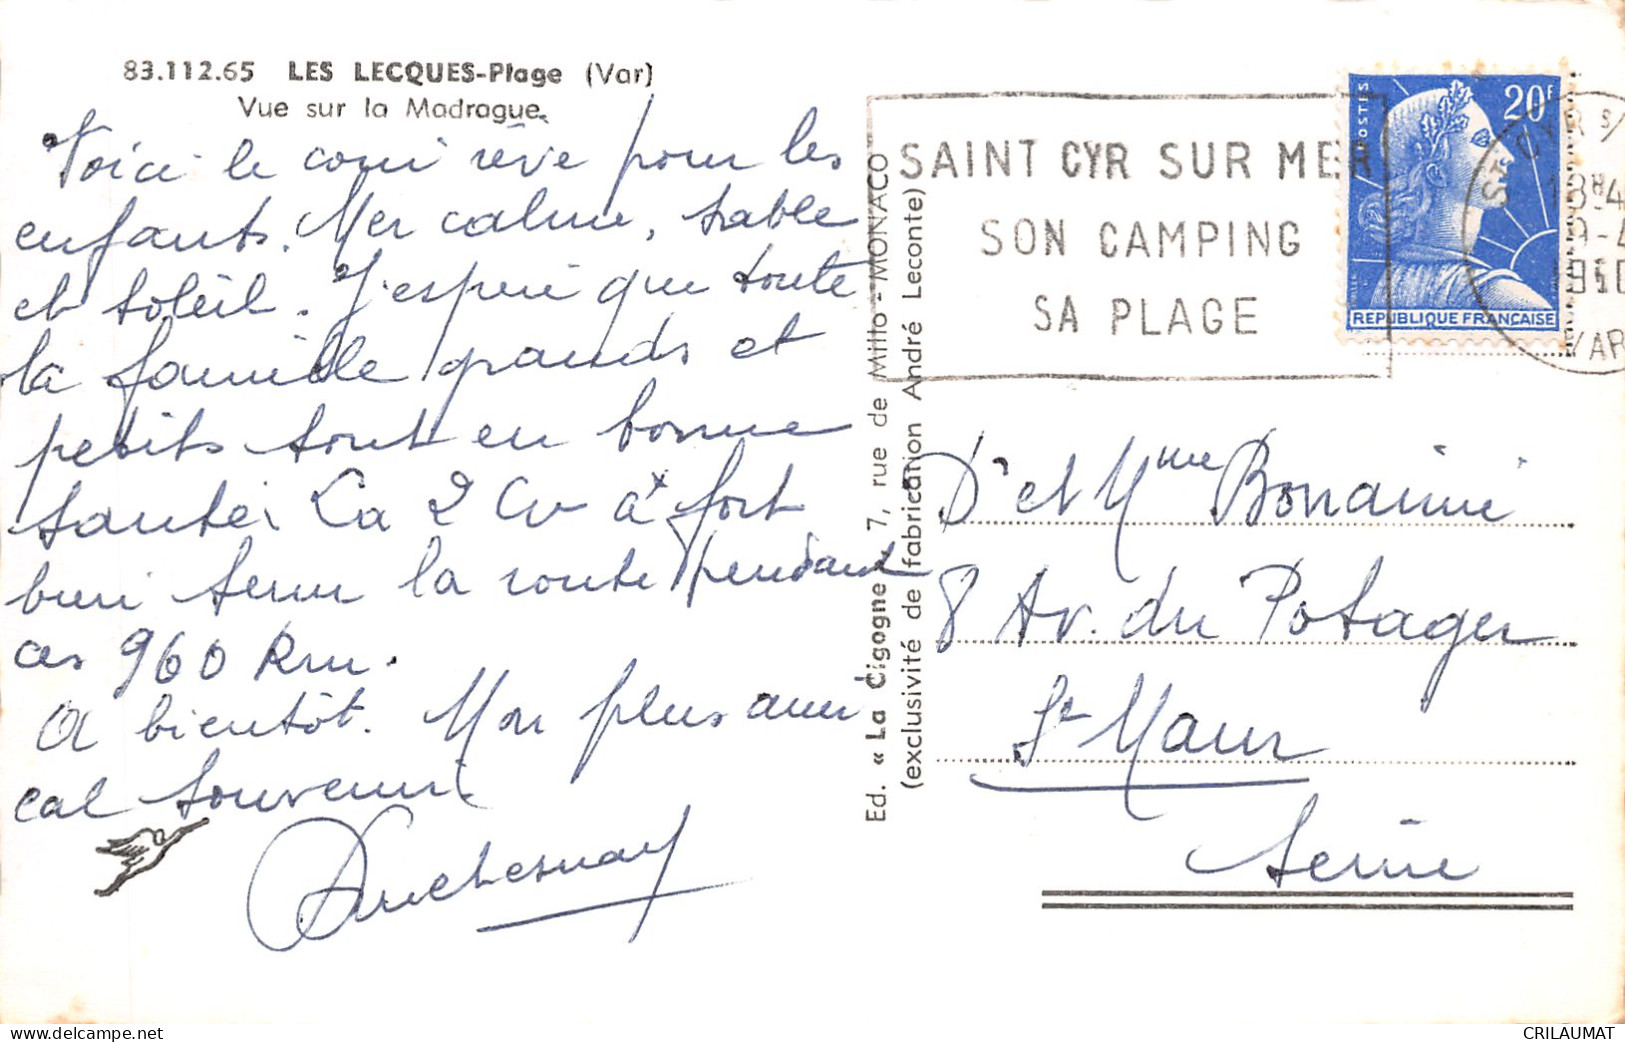 83.112.65 LES LECQUES-Plage (Var)
Vue sur la Madrague.
Voici le coin rêvé pour les
enfants. Mer calme, sable
et soleil. J'espère que toute
la famille grands et
petits sont en bonne
santé. La 2 CV a fort
bien tenu la route pendant
ces 960 Km.
A bientôt. Mon plus ami
cal souvenir
Duchesnay
Ed. « La Cigogne » 7, rue de Millo - MONACO
(exclusivité de fabrication André Leconte)
SAINT CYR SUR MER
SON CAMPING
SA PLAGE
POSTES
20F
REPUBLIQUE FRANÇAISE
STE CYR S/
18H4
9-4
1960
VAR
Dr et Mme Bonnaimé
8 Av. du Potager
St Maur
Seine
www.delcampe.net
CRILAUMAT